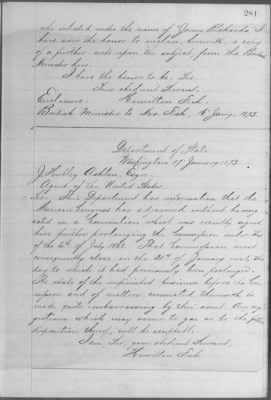 281
who enlisted under the name of "Louis Richards" I
have now the honor to enclose, herewith, a copy
of a further note upon the subject, from the British
Minister here.
I have the honor to be, Sir,
Your obedient Servant,
Hamilton Fish.
Enclosure.
British Minister to Mr. Fish, 16 Jan'y. 1873.
Department of State
Washington 17 January 1873.
J. Hubley Ashton, Esqre.
Agent of the United States.
Sir: This Department has information that the
Mexican Congress has adjourned without having
acted on a Convention which was recently signed
here further prolonging the Commission under that
of the 4th of July 1868. That Commission must
consequently close on the 31st of January next, the
day to which it had previously been prolonged.
The state of the unfinished business before the Com-
mission and of matters connected therewith is
made quite embarrassing by this event. Any sug-
gestions which may occur to you as to the
disposition thereof, will be acceptable.
I am, Sir, your obedient Servant,
Hamilton Fish